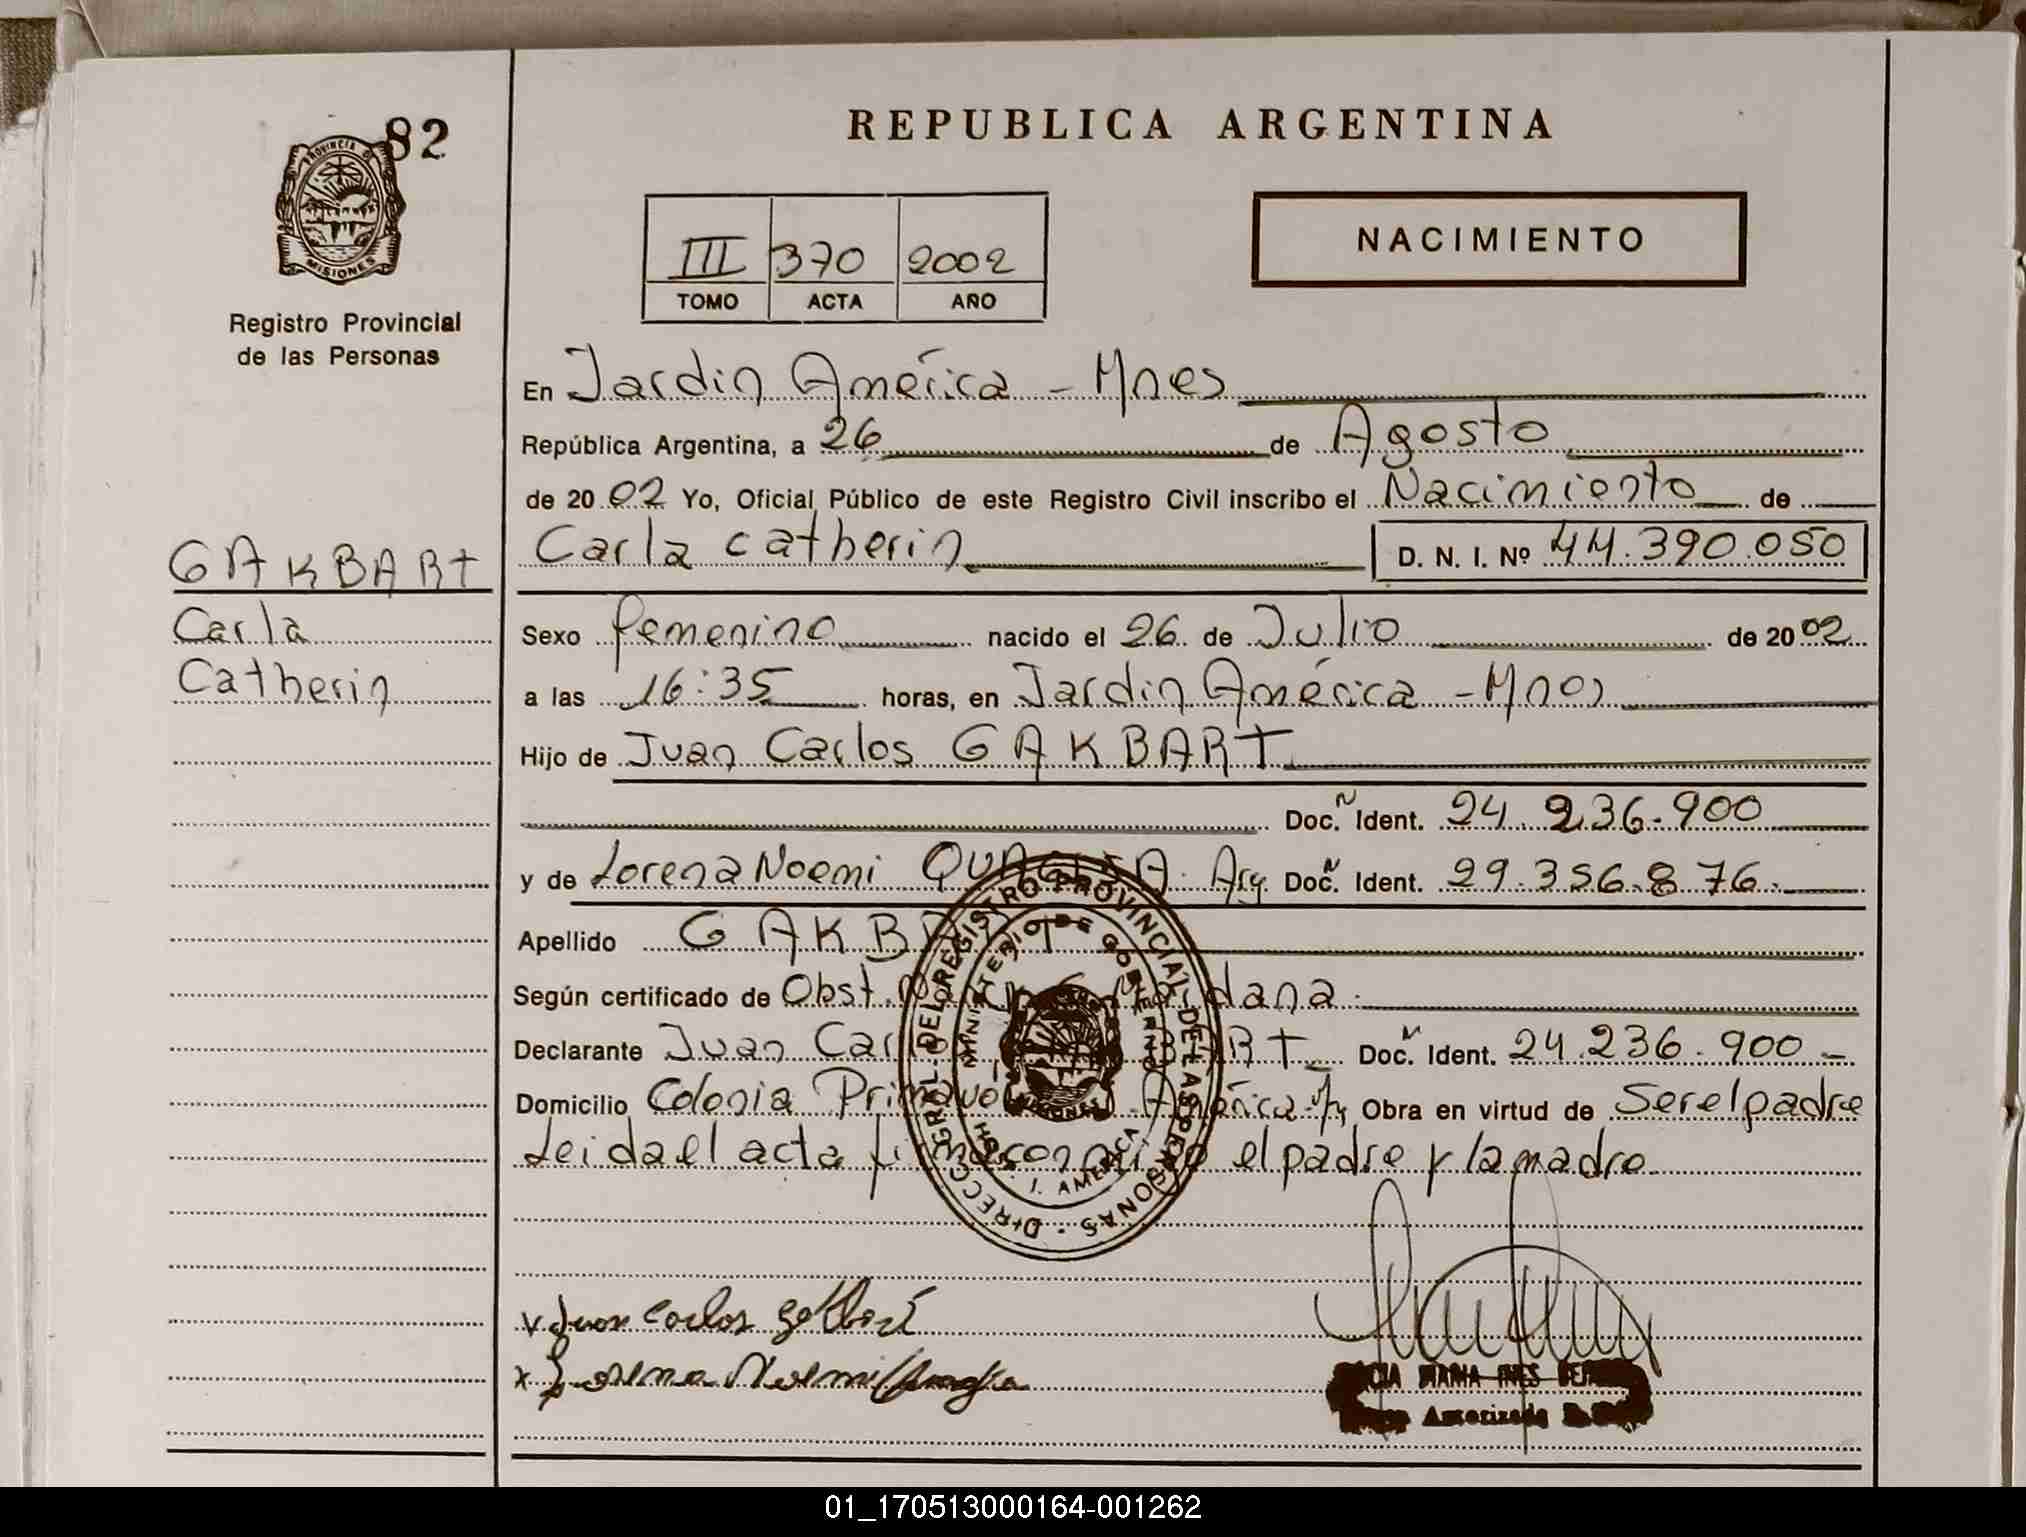 82
PROVINCIA DE
MISIONES
Registro Provincial
de las Personas
GAKBART
Carla
Catherin
REPUBLICA ARGENTINA
III 370 2002
TOMO ACTA AÑO
NACIMIENTO
En Jardin América - Mnes
República Argentina, a 26 de Agosto
de 20 02 Yo, Oficial Público de este Registro Civil inscribo el Nacimiento de
Carla Catherin D. N. I. Nº 44.390.050
Sexo femenino nacido el 26 de Julio de 20 02
a las 16:35 horas, en Jardin América - Mnes
Hijo de Juan Carlos GAKBART
Doc. Ident. 24.236.900
y de Lorena Noemi Arg. Doc. Ident. 29.356.876.
Apellido GAKBART
Según certificado de Obst.
Declarante Juan Carlos GAKBART Doc. Ident. 24.236.900 -
Domicilio Colonia América Obra en virtud de Ser el padre
Leida el acta firma conmigo el padre y la madre.
DIRECC. GRAL. DEL REGISTRO PROVINCIAL DE LAS PERSONAS
MINISTERIO DE GOBIERNO
MISIONES
I. AMERICA
Juan Carlos
x Lorena Noemi
MARIA INES
01_170513000164-001262